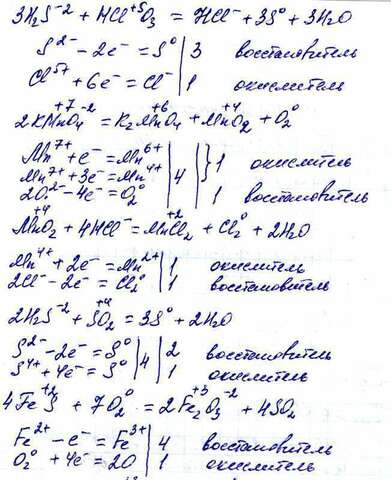 3H₂S⁻² + HCl⁺⁵O₃ = HCl⁻ + 3S⁰ + 3H₂O
S²⁻ - 2e⁻ = S⁰ | 3 восстановитель
Cl⁵⁺ + 6e⁻ = Cl⁻ | 1 окислитель
+7 -2 +6 +4
2KMnO₄ = K₂MnO₄ + MnO₂ + O₂⁰
Mn⁷⁺ + e⁻ = Mn⁶⁺ | | } 1 окислитель
Mn⁷⁺ + 3e⁻ = Mn⁴⁺ | 4 |
2O²⁻ - 4e⁻ = O₂⁰ | | 1 восстановитель
+4 +2
MnO₂ + 4HCl⁻ = MnCl₂ + Cl₂⁰ + 2H₂O
Mn⁴⁺ + 2e⁻ = Mn²⁺ | 1 окислитель
2Cl⁻ - 2e⁻ = Cl₂⁰ | 1 восстановитель
2H₂S⁻² + S⁺⁴O₂ = 3S⁰ + 2H₂O
S²⁻ - 2e⁻ = S⁰ | 4 | 2 восстановитель
S⁴⁺ + 4e⁻ = S⁰ | | 1 окислитель
+2 +3 -2
4FeS + 7O₂⁰ = 2Fe₂O₃ + 4SO₂
Fe²⁺ - e⁻ = Fe³⁺ | 4 восстановитель
O₂⁰ + 4e⁻ = 2O | 1 окислитель